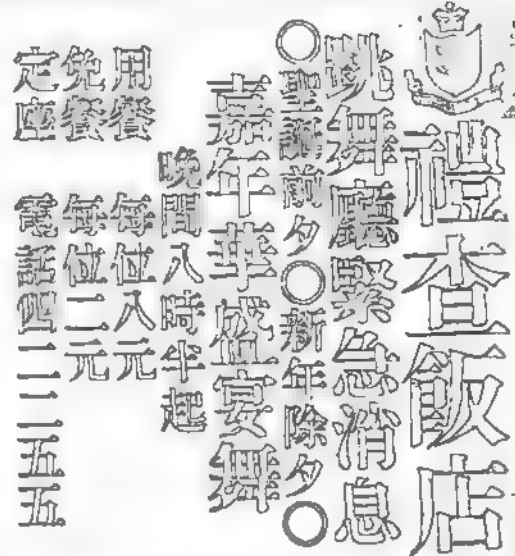 禮查飯店
跳舞廳緊急消息
◎聖誕前夕◎新年除夕◎
嘉年華盛宴舞
晚間八時半起
用餐 每位八元
免餐 每位二元
定座 電話四二二五五